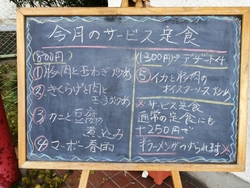 今月のサービス定食
(800円)
①豚肉と玉ねぎ炒め
②きくらげと肉と
玉子炒め
③カニと豆腐
煮込み
④マーボー春雨
(1300円)デザート付
⑤イカと豚肉の
オイスターソース炒め
※サービス定食
通常の定食にも
+250円で
半ラーメンつけられます※